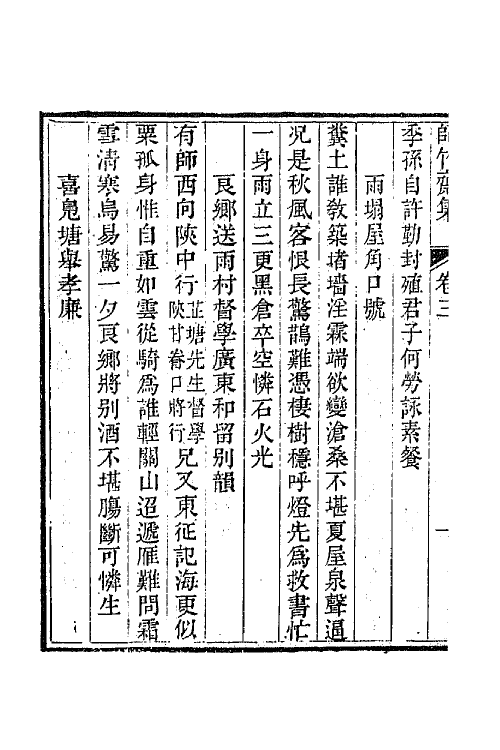 師竹齋集 卷三 一
季孫自許勤封殖君子何勞詠素餐
雨塌屋角口號
糞土誰敎築堵墻淫霖端欲變滄桑不堪夏屋泉聲逼
况是秋風客恨長驚鵲難憑棲樹穩呼燈先爲救書忙
一身雨立三更黑倉卒空憐石火光
良鄉送雨村督學廣東和留別韻
有師西向陜中行芷塘先生督學陜甘眷口將行兄又東征記海更似
粟孤身惟自重如雲從騎爲誰輕關山迢遞雁難問霜
雪淸寒烏易驚一夕良鄉將别酒不堪腸斷可憐生
喜鳧塘舉孝廉